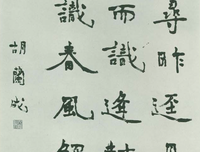 尋昨逕
而識逢
識春風
胡蘭成